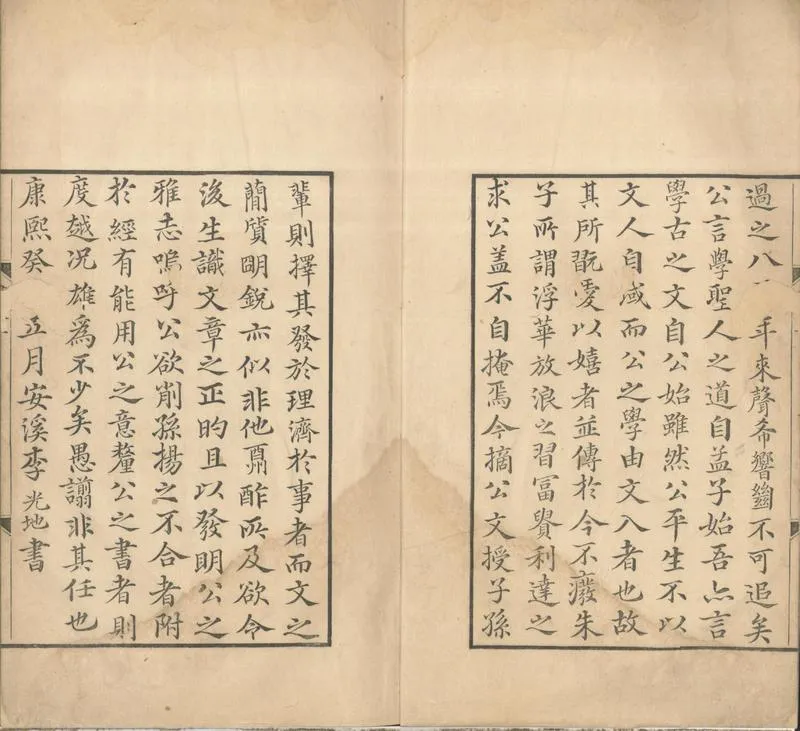 過之八 年來聲希響邈不可追矣
公言學聖人之道自孟子始吾亦言
學古之文自公始雖然公平生不以
文人自域而公之學由文入者也故
其所翫愛以嬉者並傳於今不廢朱
子所謂浮華放浪之習富貴利達之
求公盖不自掩焉今摘公文授子孫
輩則擇其發於理濟於事者而文之
簡質明銳亦似非他鼐酢所及欲令
後生識文章之正的且以發明公之
雅志嗚呼公欲削孫揚之不合者附
於經有能用公之意釐公之書者則
度越况雄為不少矣愚譾非其任也
康熙癸 五月安溪李光地書